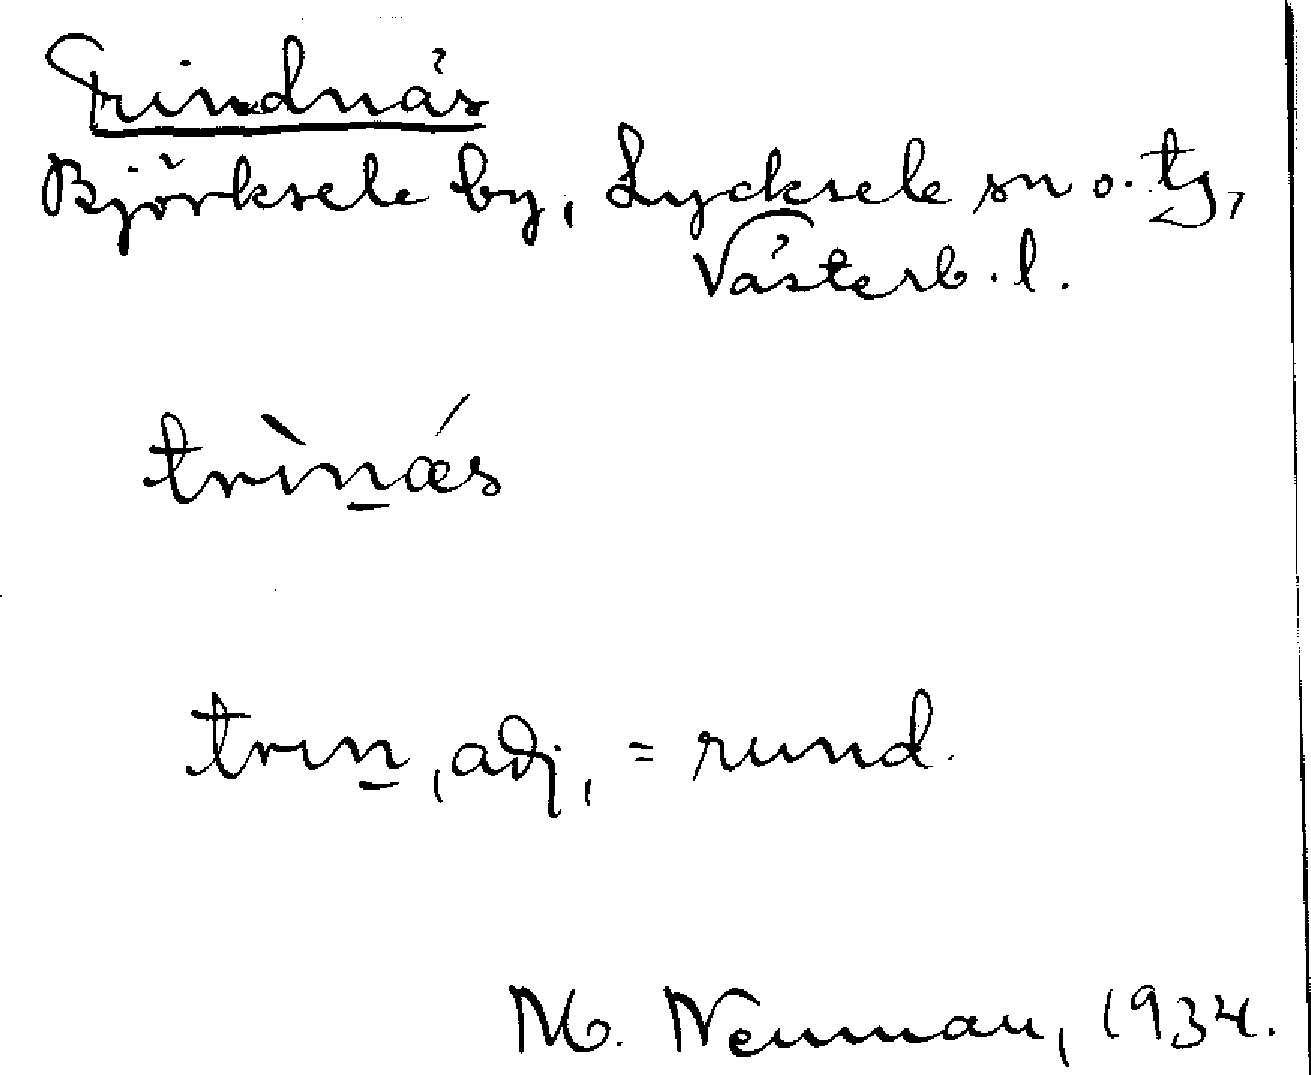 Trindnäs
Björksele by, Lycksele sn o. tg,
Västerb. l.
trìn̲ǽs
trın̲, adj, = rund.
M. Neuman, 1934.